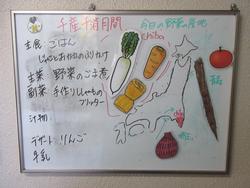 千産千消月間
今日の野菜の産地
chiba
主食 ごはん
じゃことおかかのふりかけ
主菜 野菜のごま煮
副菜 手作りししゃもの
フリッター
汁物
デザート りんご
牛乳
青森
埼玉